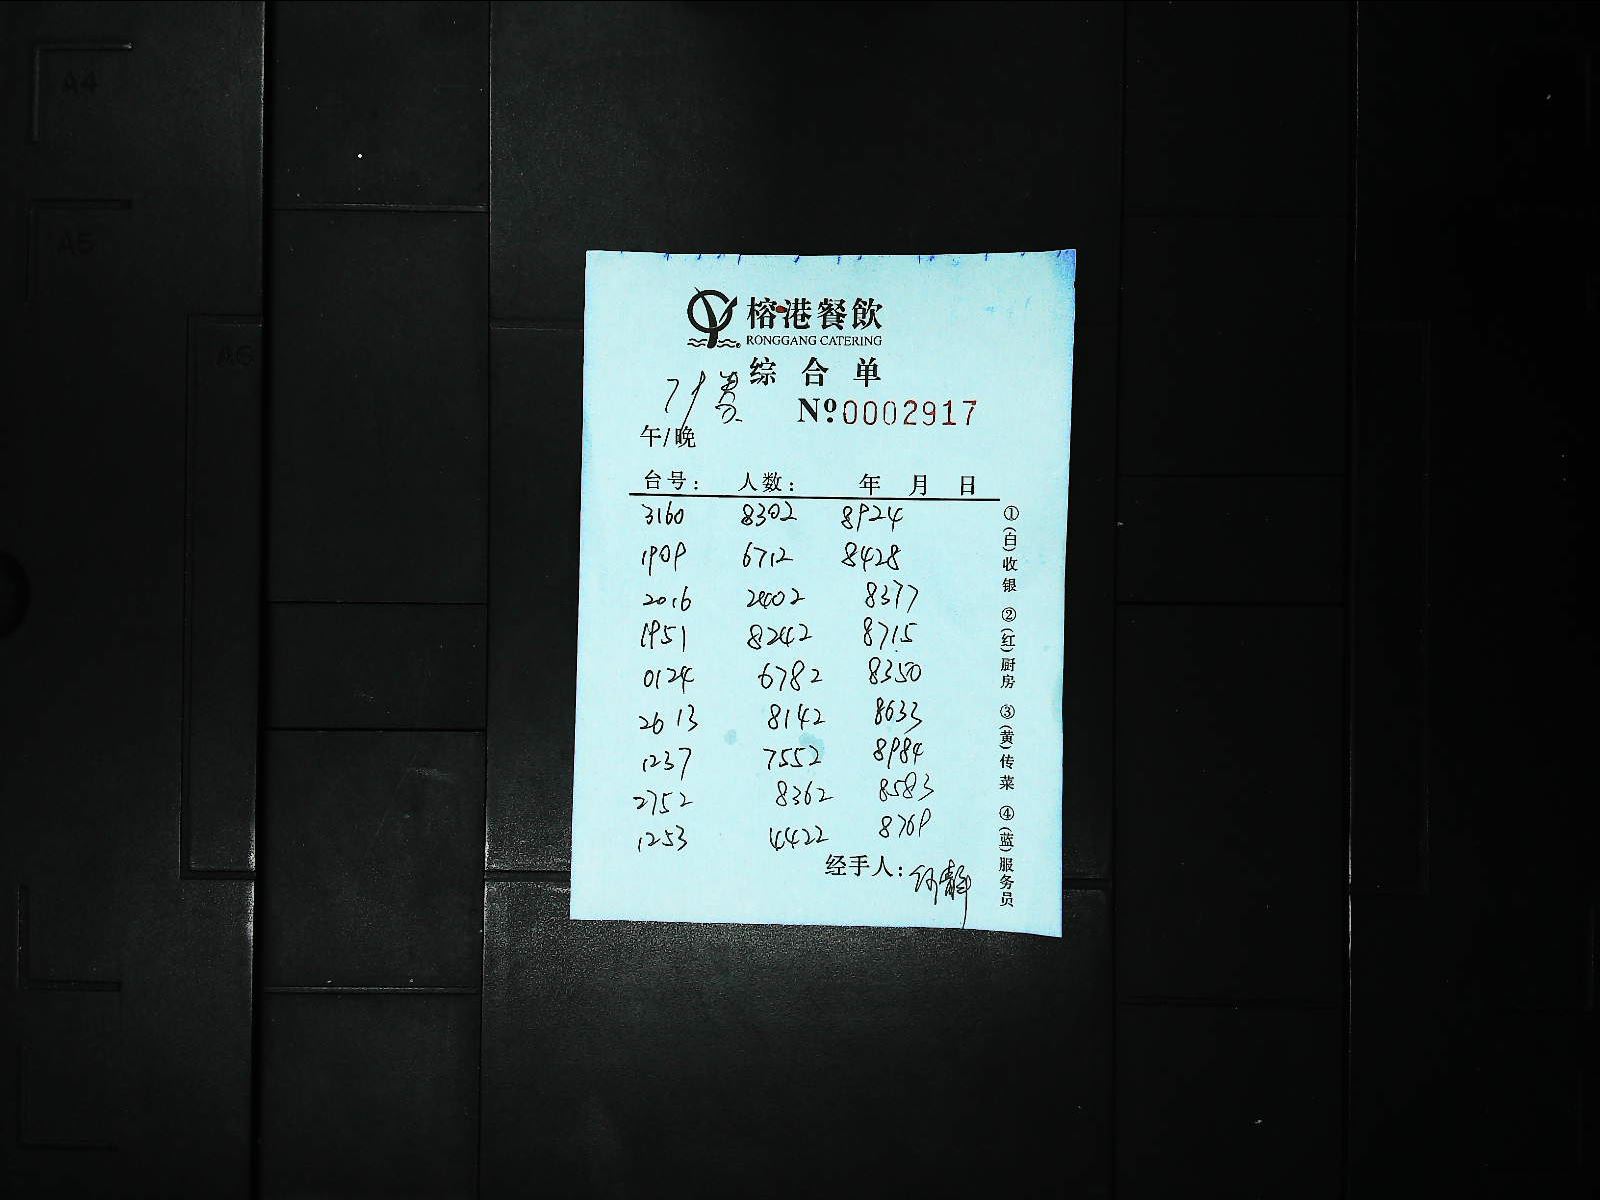 A4
A5
A6
榕港餐飲
RONGGANG CATERING
综合单
№0002917
午/晚
台号: 人数: 年 月 日
3160 8302 8924
1909 6712 8428
2016 2402 8377
1951 8242 8715
0124 6782 8350
2613 8142 8633
1237 7552 8984
2752 8362 8583
1253 4422 8769
经手人:
①(白)收银 ②(红)厨房 ③(黄)传菜 ④(蓝)服务员